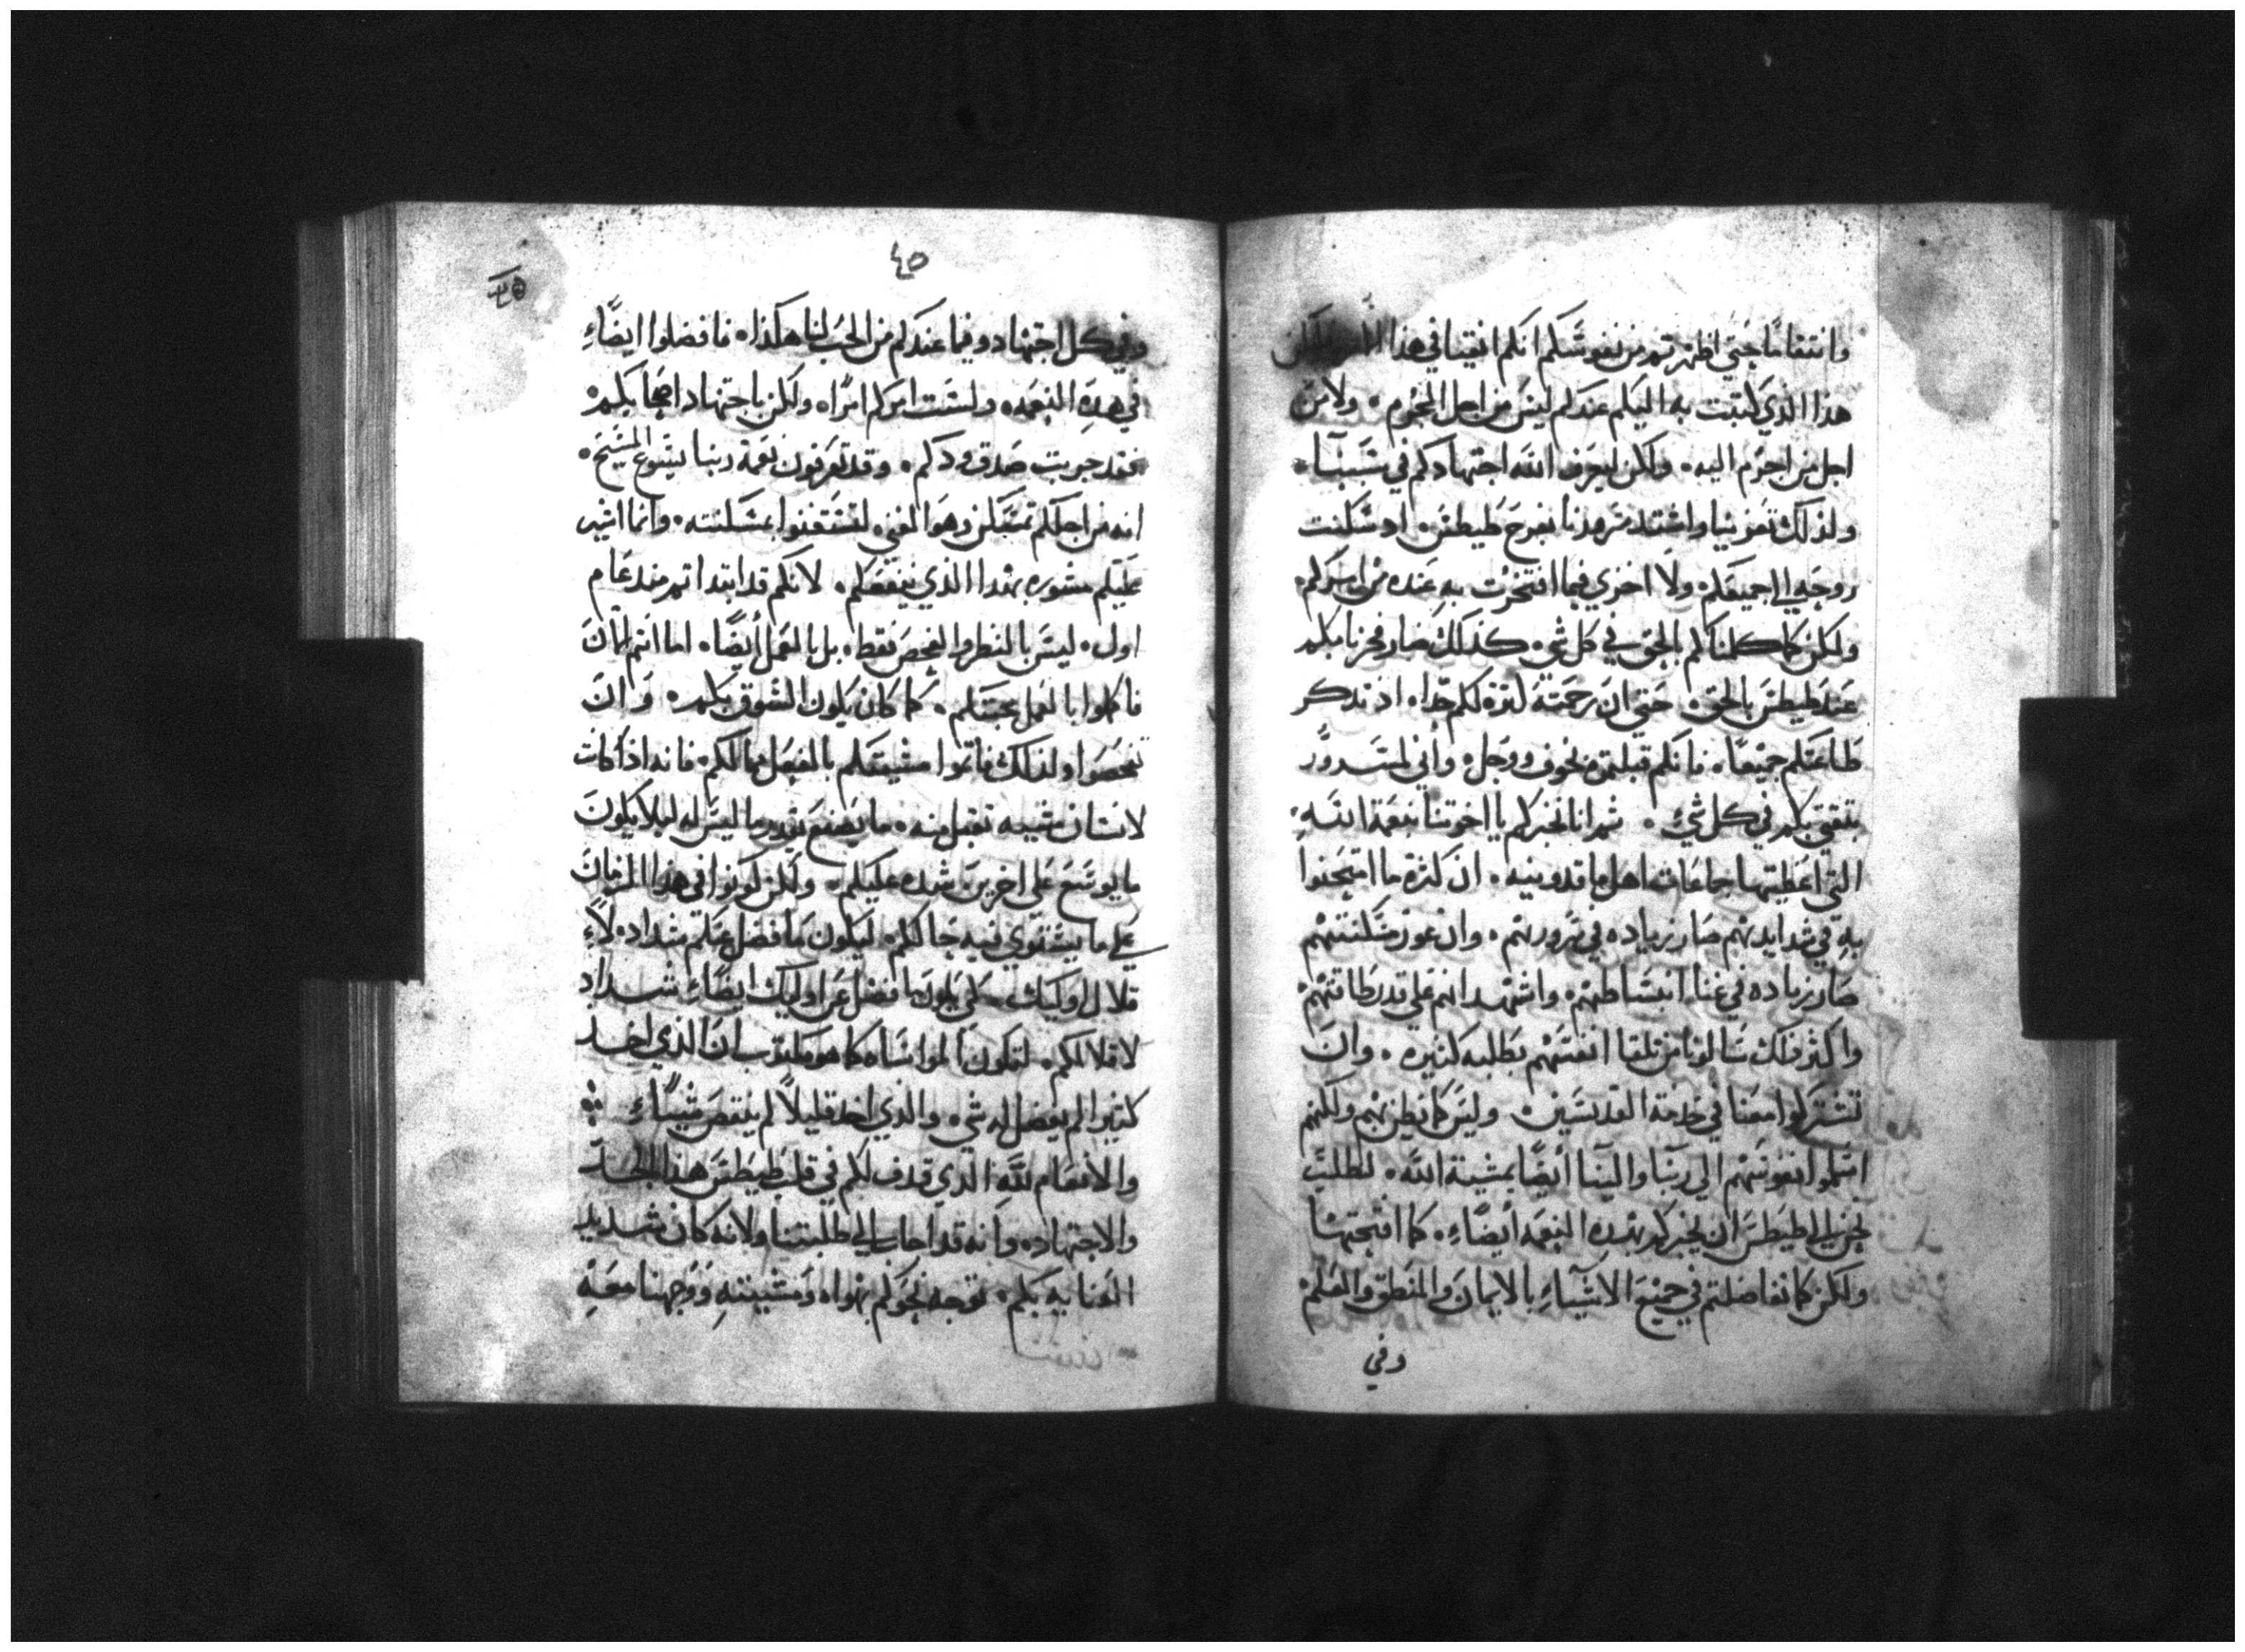 وانتقامًا حتي اظهرتم من نفوسكم انكم انقيا في هذا
هذا الذي كتبت به اليكم عندكم ليس من اجل المجرم. ولا من
اجل من اجرم اليه. ولكن ليعرف الله اجتهادكم في سببنا.
ولذلك تعزينا واشتد سرورنا بفرح طيطس. اد سكنت
روحه الي جميعكم. ولا اخزي فيما افتخرت به عنده من امركم.
ولكن كما كلمناكم بالحق في كل شي. كذلك صار فخرنا بكم
عند طيطس بالحق. حتي ان رحمته لتزه لكم جدا. اذ تدكر
طاعتكم جميعًا. فانكم قبلتموه بخوف ووجل. واني لمسرور
بتقتي بكم في كل شي. ثم انا نخبركم يا اخوتنا بنعمة الله
التي اعطيتها جماعات اهل ماقدونيه. ان كثرة ما امتحنوا
به في شدايدهم صار زياده في سرورهم. وان عوز مسكنتهم
صار زياده في غنا انبساطهم. واشهد انهم علي قدر طاقتهم
واكثر من ذلك سالونا من تلقا انفسهم بطلبه كثيره. وان
تشتركوا معنا في خدمة القديسين. وليس كما نظن بهم ولكنهم
اسلموا نفوسهم الي ربنا والينا أيضًا بمشية الله. لنطلب
نحن الي طيطس ان يخبركم بهذه النعمه أيضًا. كما افتتحها
ولكن كما تفاضلتم في جميع الاشيآء بالايمان والمنطق والعلم
وفي
٤٥
٤٥
وفي كل اجتهاد وفيما عندكم من الحب لنا هكذا. فافضلوا ايضًا
في هذه النعمه. ولست امركم امرًا. ولكن باجتهاد اصحابكم
فقد جربت صدق ودكم. وقد تعرفون نعمة ربنا يسوع المسيح.
انه من اجلكم تمسكن وهو الغني لتستغنوا بمسكنته. وانما اشير
عليكم مشوره بهدا الذي ينفعكم. لانكم قد ابتداتم مند عام
اول. ليس بالنظر والفحص فقط. بل بالعمل أيضًا. اما انتم الان
فاكملوا بالعمل محبتكم. كما كان يكون الشوق بكم. وان
تحصوا ولذلك فاتموا مشيتكم بالفعل مما لكم. فانه اذا كانت
لانسان مشيه تقبل منه. ما يصنع بقدر ما ليس له ليلا يكون
ما يوسع علي اخرين شده عليكم. ولكن كونوا في هذا الزمان
علي ما يستوي فيه حالكم. ليكون ما فضل عنكم سدادًا
قلال اوليك. لكي يكون ما فضل عن اوليك ايضًا سداد
لاقلالكم. لتكون المواساه كما هو مكتوب ان الذي اخد
كثيرا لم يفضل له شي. والذي اخد قليلاً لم ينقص شيًا
والانعام لله الدي قدف لكم في قلب طيطس هذا الجد
والاجتهاد. وانه قد اجاب الي طلبتنا ولانه كان شديد
العنايه بكم. توجه نحوكم بهواه ومشيته ووجهنا معه